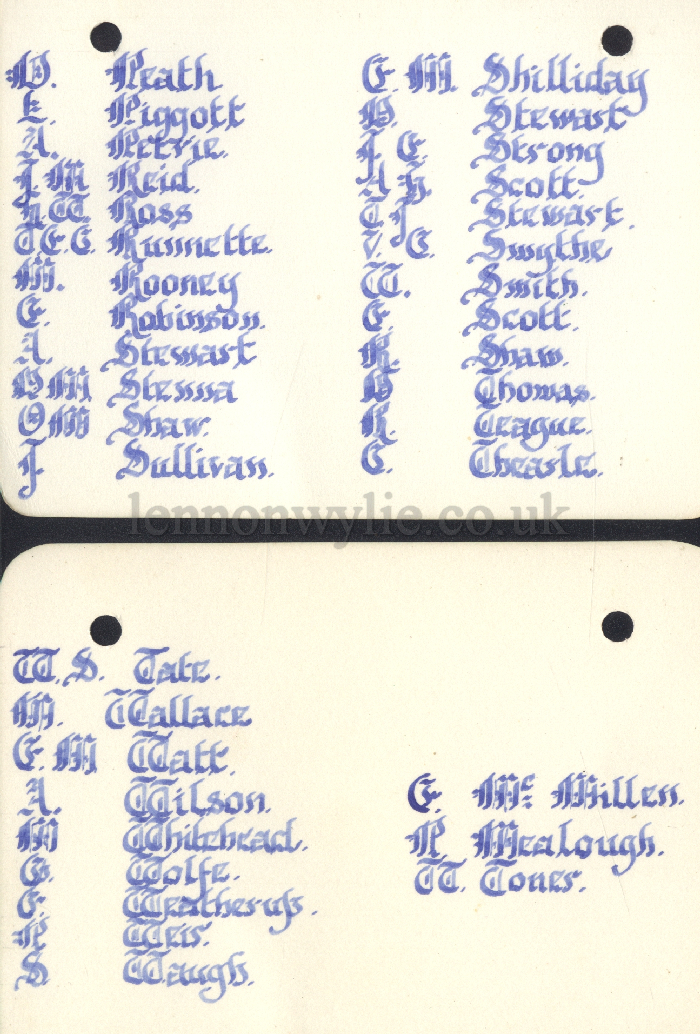 D. Peath
E. Piggott
A. Petrie.
J. M Reid.
H. W. Ross
T. E. C. Runnette.
M. Rooney
E. Robinson.
A. Stewart
D M Stenna
O M Shaw.
J. Sullivan.
E. M. Shilliday
D. Stewart
J E. Strong
A H. Scott.
T J Stewart.
V. C. Smythe
W. Smith.
E. Scott.
R. Shaw.
D Thomas.
R. Teague.
C. Thearle.
lennonwylie.co.uk
W. S. Tate.
M. Wallace
E. M Watt.
A. Wilson.
M Whitehead.
G. Wolfe.
E. Weatherup.
R Weir.
S Waugh.
E. Mc. Millen.
R. Mealough.
W. Toner.